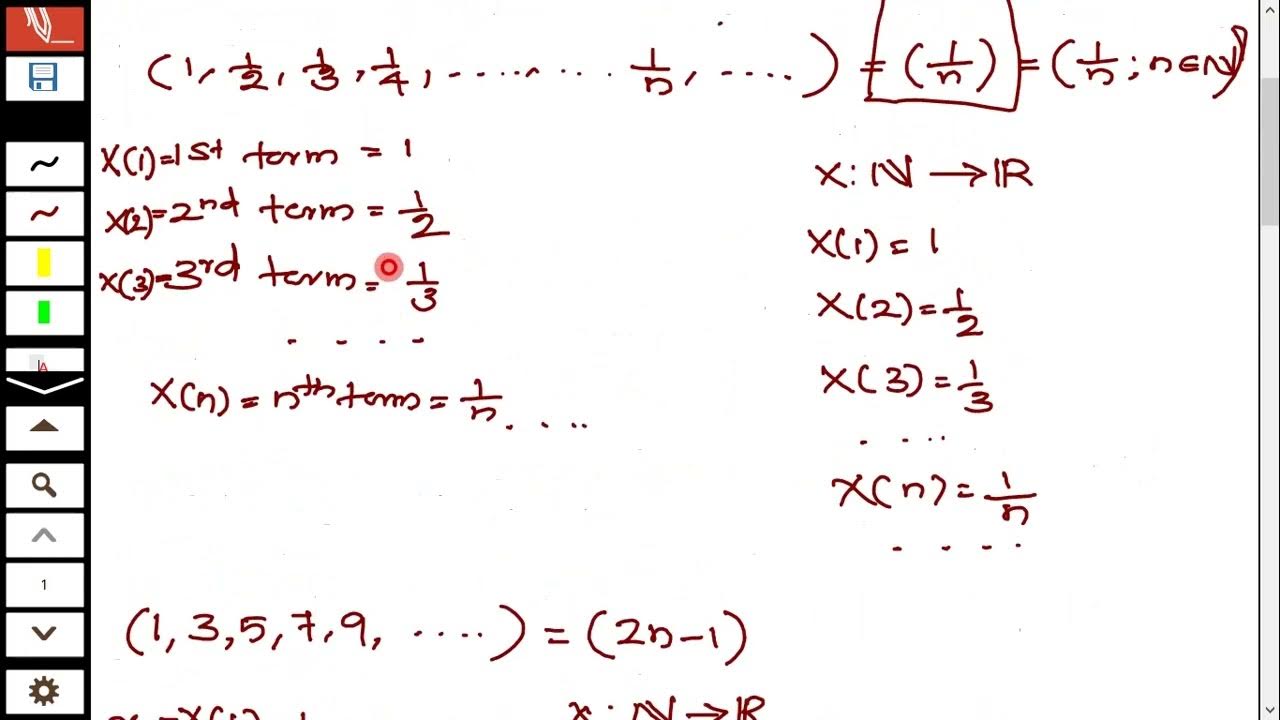 (1, 1/2, 1/3, 1/4, ........ 1/n, ....) = (1/n) = (1/n ; n∈ℕ)
X(1)=1st term = 1
X(2)=2nd term = 1/2
X(3)=3rd term = 1/3
. . . .
X(n) = nth term = 1/n . . . .
x: ℕ → ℝ
X(1) = 1
X(2) = 1/2
X(3) = 1/3
. . . .
X(n) = 1/n
. . . .
(1, 3, 5, 7, 9, ....) = (2n-1)
x: ℕ → ℝ
1
A